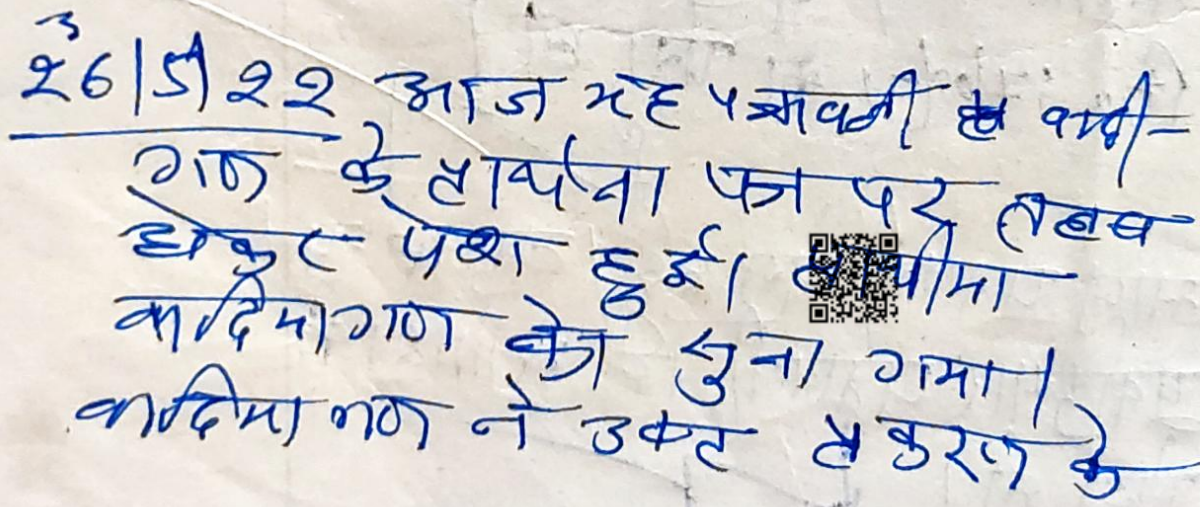 26/5/22 आज यह पत्रावली वादी-
गण के प्रार्थना पत्र पर तलब
होकर पेश हुई। प्रार्थीया
वादियागण को सुना गया।
वादियागण ने उक्त प्रकरण के